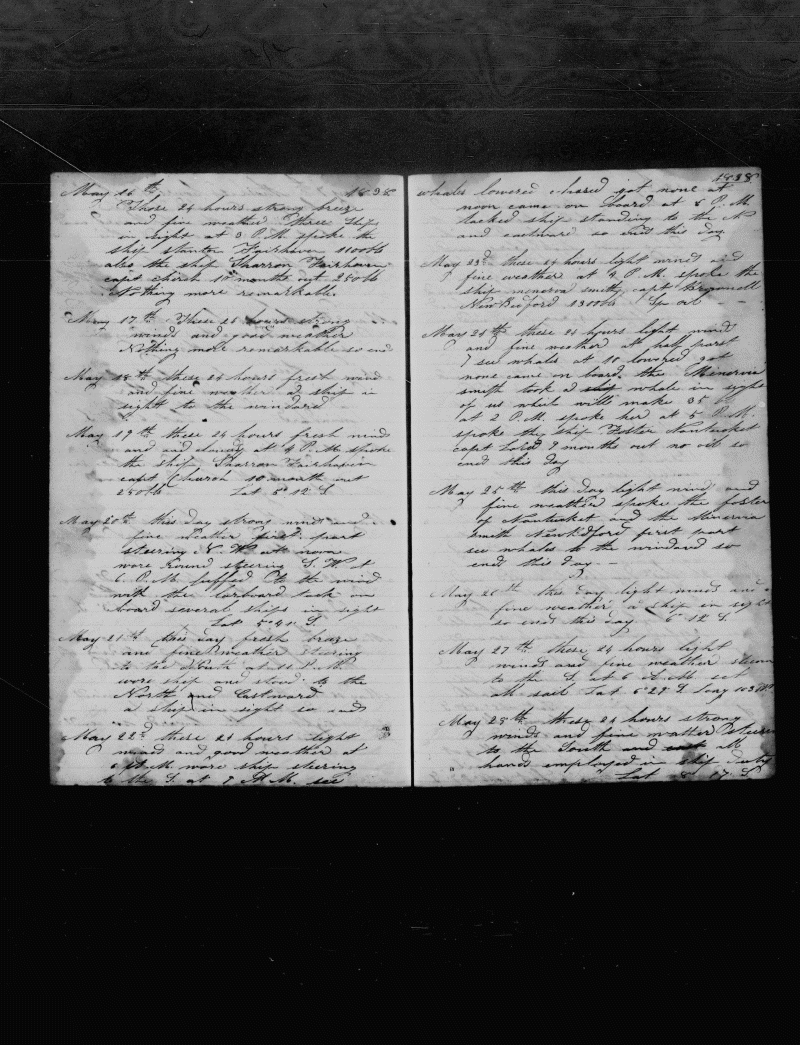 May 16th 1838
These 24 hours strong breze
and fine weather three ships
in sight at 3 P.M. spoke the
ship Stanton Fairhaven 1100bb
also the ship Sharron Fairhaven
capt Church 10 months out 250bb
Nothing more remarkable
May 17th These 24 hours strong
winds and good weather
Nothing more remarkable so end
May 18th these 24 hours fresh wind
and fine weather a ship in
sight to the windard
May 19th these 24 hours fresh winds
and at 4 P.M. spoke
the ship Sharron Fairhaven
capt Church 10 month out
250bb Lat 5° 12 S
May 20th this day strong wind and
fine weather first part
steering N. W. att noon
wore round steering S. W at
6. P.M. luffed to the wind
with the larboard tack on
board several ships in sight
Lat 5° 41 S.
May 21st this day fresh breze
and fine weather steering
to the South at 11 P.M
wore ship and stood to the
North and Eastward
a ship in sight so ends
May 22d these 24 hours light
winds and good weather at
6 A.M. wore ship steering
to the S. at 7 A M. see
1838
whales lowered chased got none at
noon came on board at 5 P.M
tacked ship standing to the N
and eastward so ends this day
May 23d these 24 hours light winds and
fine weather at 4 P.M. spoke the
ship menerva smith capt
New Bedford 1300bb Spr oil
May 24th these 24 hours light wind
and fine weather at half past
7 see whales at 10 lowered got
none came on board the Minerva
smith took a whale in sight
of us which will make 35 b
at 2 P.M. spoke her at 5 P.M.
spoke the ship Foster Nantucket
capt 9 months out no oil so
end this day
May 25th this day light wind and
fine weather spoke the foster
of Nantucket and the Minerva
Smith New Bdford first part
see whales to the windard so
end this day
May 26th this day light winds and
fine weather a ship in sight
so ends this day 6° 12 S.
May 27th these 24 hours light
winds and fine weather steering
to the S. at 6 A.M set
all sail Lat 6° 29 S Long 103
May 28th these 24 hours strong
winds and fine weather steering
to the South and east all
hands employed in ship duty
Lat 17 S